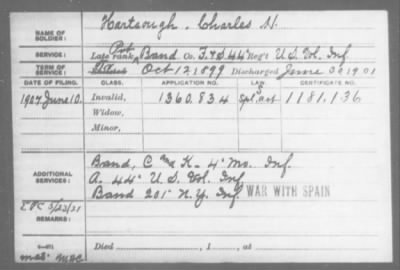 NAME OF SOLDIER: Hartsough, Charles H.
SERVICE: Late rank Pvt Band Co. F. & S. 44 Reg't U.S. Vol. Inf
TERM OF SERVICE: Enlisted Oct 12 1899 Discharged June 30 1901
DATE OF FILING. CLASS. APPLICATION NO. LAW. CERTIFICATE NO.
1907 June 10. Invalid, 1360.834 Spl. act 1181.136
Widow,
Minor,
ADDITIONAL SERVICES: Band, C and K- 4" Mo. Inf.
A. 44" U.S. Vol. Inf
Band 201" N.Y. Inf WAR WITH SPAIN
5/23/21
REMARKS:
Died , 1 , at